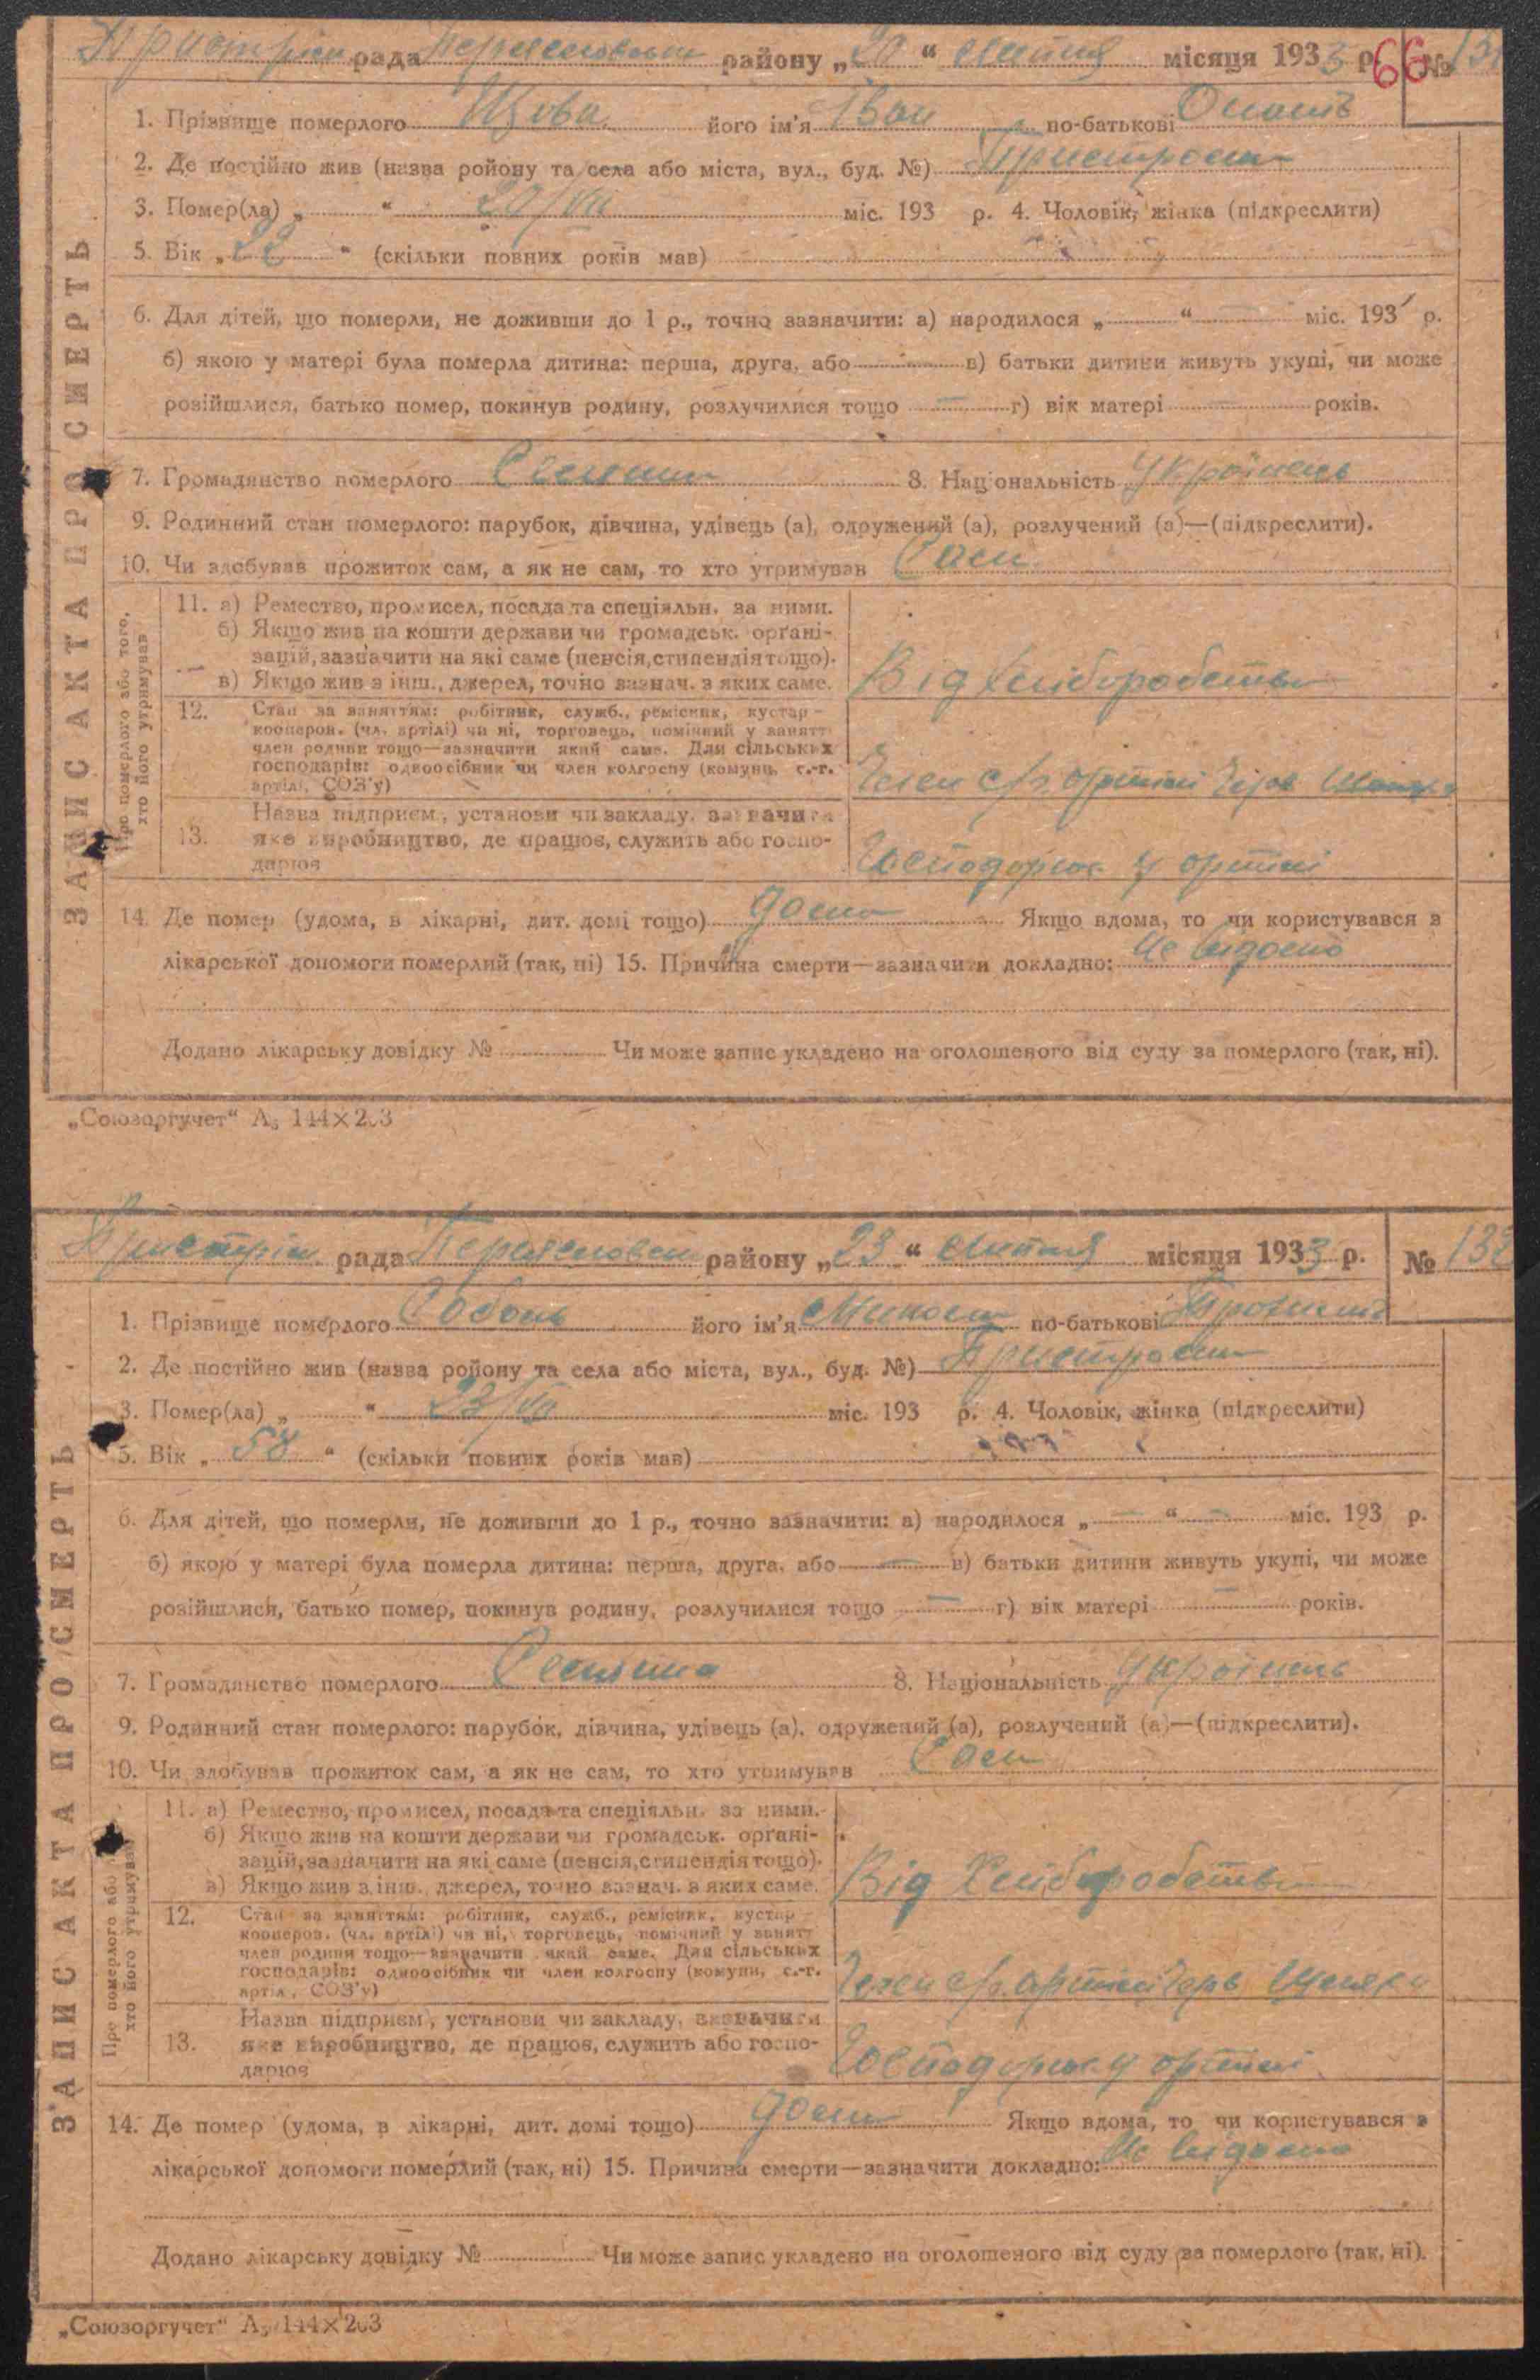 рада району „20“ липня місяця 1933 р. 66 №
1. Прізвище померлого його ім'я Іван по-батькові
2. Де постійно жив (назва ройону та села або міста, вул., буд. №)
3. Помер(ла) „ “ 20/VII міс. 193 р. 4. Чоловік, жінка (підкреслити)
5. Вік „ “ (скільки повних років мав)
6. Для дітей, що померли, не доживши до 1 р., точно зазначити: а) народилося „ — “ — міс. 193 р.
б) якою у матері була померла дитина: перша, друга, або — в) батьки дитини живуть укупі, чи може
розійшлися, батько помер, покинув родину, розлучилися тощо — г) вік матері — років.
7. Громадянство померлого 8. Національність Українець
9. Родинний стан померлого: парубок, дівчина, удівець (а), одружений (а), розлучений (а)—(підкреслити).
10. Чи здобував прожиток сам, а як не сам, то хто утримував Сам
ЗАПИС АКТА ПРО СМЕРТЬ
Про померлого або того,
хто його утримував
11. а) Ремество, промисел, посада та спеціяльн. за ними.
б) Якщо жив на кошти держави чи громадськ. органі-
зацій, зазначити на які саме (пенсія, стипендія тощо).
в) Якщо жив з інш., джерел, точно зазнач. з яких саме.
Від хліборобства
12. Стан за заняттям: робітник, служб., ремісник, кустар —
кооперов. (чл. артілі) чи ні, торговець, помічний у занятт
член родини тощо—зазначити який саме. Для сільських
господарів: одноосібник чи член колгоспу (комуни, с.-г.
артілі, СОЗ'у)
Член с/г. артілі
13. Назва підприєм., установи чи закладу, зазначити
яке виробництво, де працює, служить або госпо-
дарює
Господарює у артілі
14. Де помер (удома, в лікарні, дит. домі тощо) дома Якщо вдома, то чи користувався з
лікарської допомоги померлий (так, ні) 15. Причина смерти—зазначити докладно: Не відомо
Додано лікарську довідку № Чи може запис укладено на оголошеного від суду за померлого (так, ні).
„Союзоргучет“ А₅ 144×203
рада району „23“ липня місяця 1933 р. № 132
1. Прізвище померлого його ім'я по-батькові
2. Де постійно жив (назва ройону та села або міста, вул., буд. №)
3. Помер(ла) „ “ 23/VII міс. 193 р. 4. Чоловік, жінка (підкреслити)
5. Вік „58“ (скільки повних років мав)
6. Для дітей, що померли, не доживши до 1 р., точно зазначити: а) народилося „ — “ — міс. 193 р.
б) якою у матері була померла дитина: перша, друга, або — в) батьки дитини живуть укупі, чи може
розійшлися, батько помер, покинув родину, розлучилися тощо — г) вік матері — років.
7. Громадянство померлого 8. Національність Українець
9. Родинний стан померлого: парубок, дівчина, удівець (а), одружений (а), розлучений (а)—(підкреслити).
10. Чи здобував прожиток сам, а як не сам, то хто утримував Сам
ЗАПИС АКТА ПРО СМЕРТЬ
Про померлого або
хто його утримував
11. а) Ремество, промисел, посада та спеціяльн. за ними.
б) Якщо жив на кошти держави чи громадськ. органі-
зацій, зазначити на які саме (пенсія, стипендія тощо).
в) Якщо жив з інш., джерел, точно зазнач. з яких саме.
Від Хліборобства
12. Стан за заняттям: робітник, служб., ремісник, кустар —
кооперов. (чл. артілі) чи ні, торговець, помічний у занятт
член родини тощо—зазначити який саме. Для сільських
господарів: одноосібник чи член колгоспу (комуни, с.-г.
артілі, СОЗ'у)
Член с/г. артілі
13. Назва підприєм., установи чи закладу, зазначити
яке виробництво, де працює, служить або госпо-
дарює
Господарює у артілі
14. Де помер (удома, в лікарні, дит. домі тощо) дома Якщо вдома, то чи користувався з
лікарської допомоги померлий (так, ні) 15. Причина смерти—зазначити докладно: Не відомо
Додано лікарську довідку № Чи може запис укладено на оголошеного від суду за померлого (так, ні).
„Союзоргучет“ А₅ 144×203